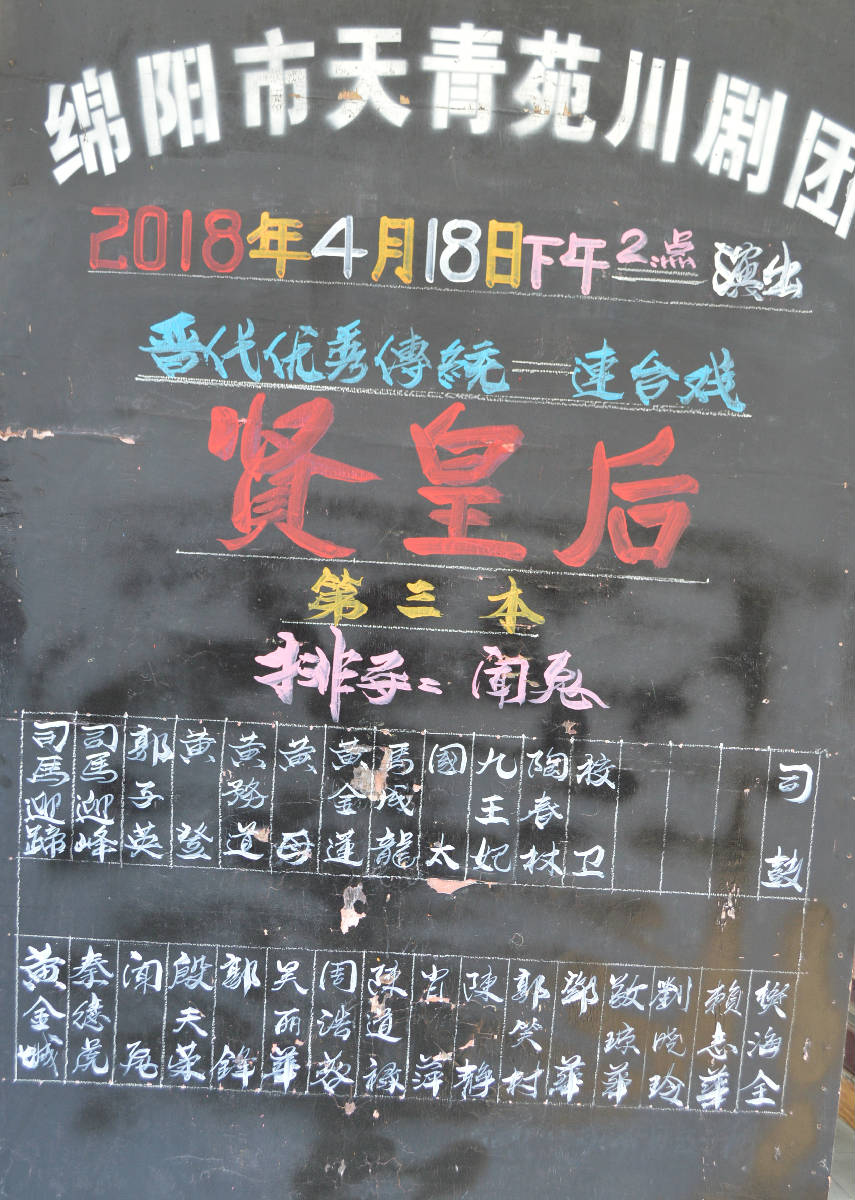 绵阳市天青苑川剧团
2018年4月18日下午2:点 演出
晋代优秀傳統——連台戏
贤皇后
第三本
司馬迎蹄 司馬迎峰 郭子英 黄登 黄務道 黄母 黄金蓮 馬成龍 國太 九王妃 陶春林 校卫 司鼓
黄金城 秦德虎 闻尾 殷天荣 郭鋒 吴丽華 周浩蓉 陳道禄 肖萍 陳静 郭笑村 鄧華 敬琼華 劉晓玲 賴志華 樊海全